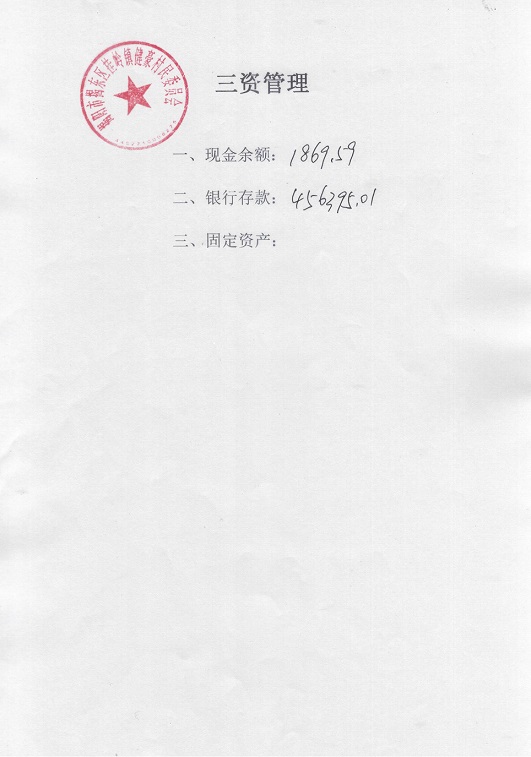 揭阳市揭东区桂岭镇健豪村民委员会
三资管理
一、现金余额：1869.59
二、银行存款：456395.01
三、固定资产：